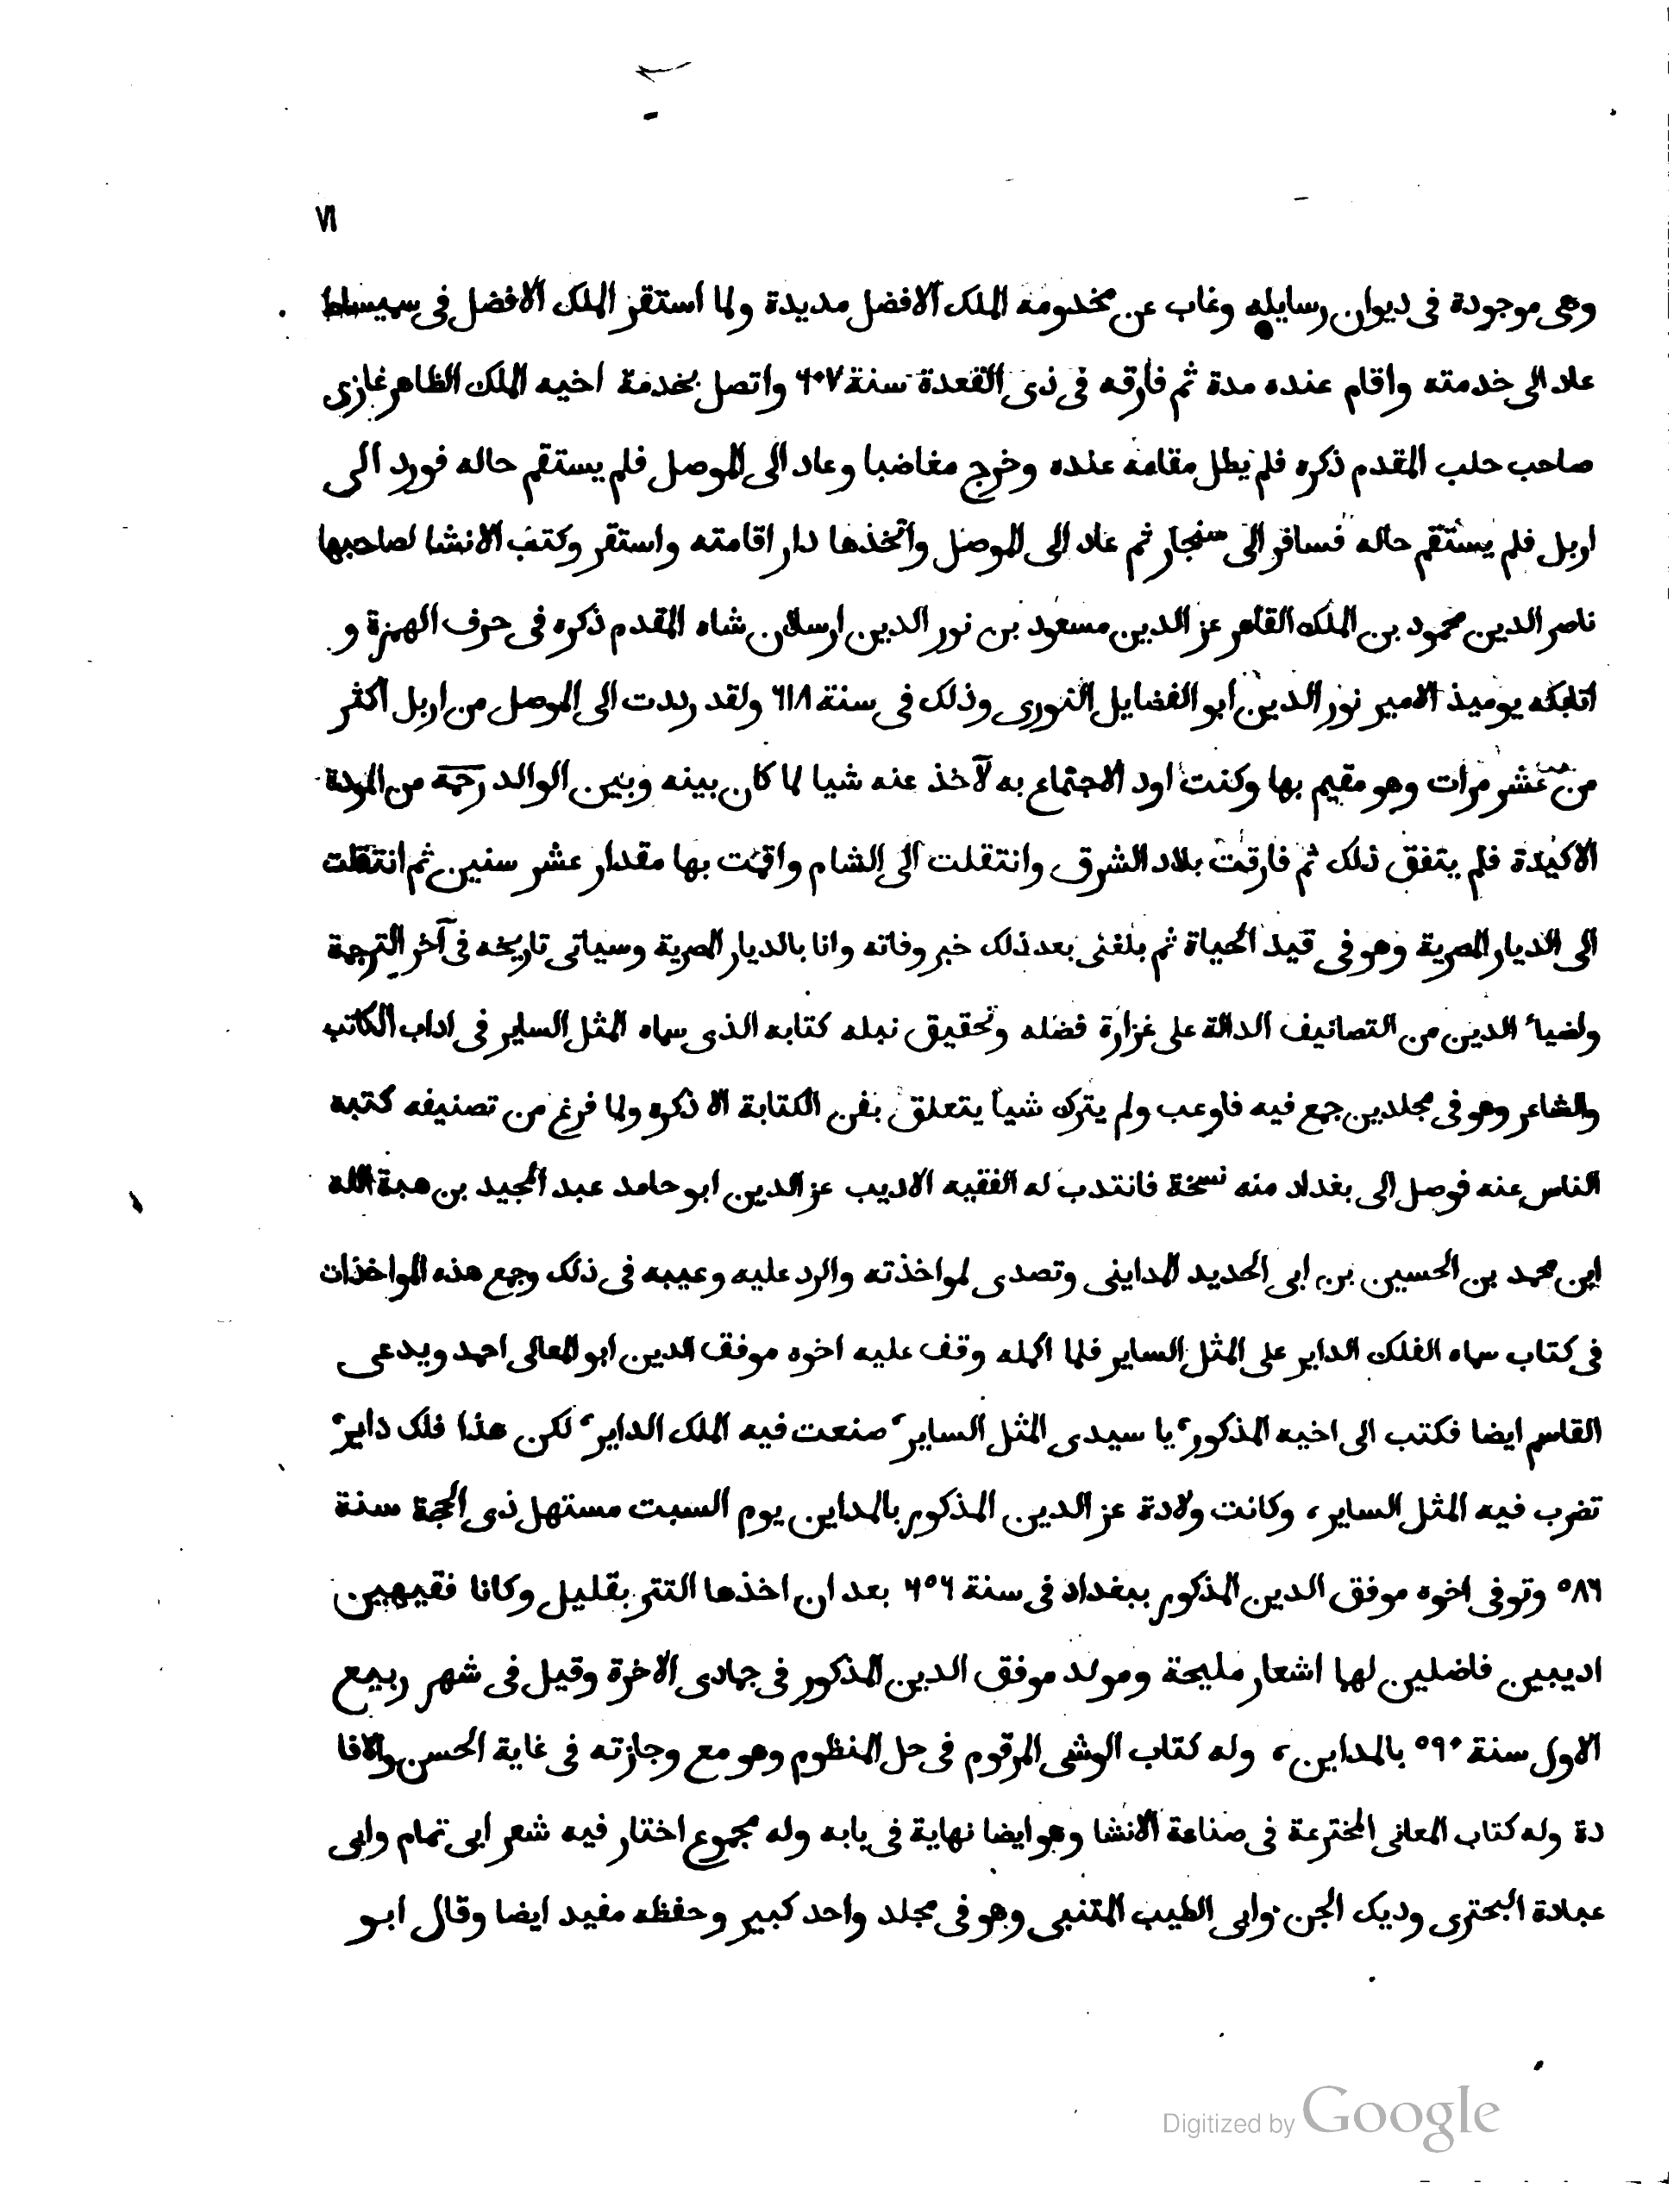 ٧١
وهى موجودة فى ديوان رسايله وغاب عن مخدومه الملك الافضل مديدة ولما استقر الملك الافضل فى سميساط
عاد الى خدمته واقام عنده مدة ثم فارقه فى ذى القعدة سنة ٦٠٧ واتصل بخدمة اخيه الملك الظاهر غازى
صاحب حلب المقدم ذكره فلم يطل مقامه عنده وخرج مغاضبا وعاد الى الموصل فلم يستقم حاله فورد الى
اربل فلم يستقم حاله فسافر الى سنجار ثم عاد الى الموصل واتخذها دار اقامته واستقر وكتب الانشا لصاحبها
ناصر الدين محمود بن الملك القاهر عز الدين مسعود بن نور الدين ارسلان شاه المقدم ذكره فى حرف الهمزة و
اتابكه يوميذ الامير نور الدين ابو الفضايل النورى وذلك فى سنة ٦١٨ ولقد رددت الى الموصل من اربل اكثر
من عشر مرات وهو مقيم بها وكنت اود الاجتماع به لآخذ عنه شيا لما كان بينه وبين الوالد رحمه من المودة
الاكيدة فلم يتفق ذلك ثم فارقت بلاد الشرق وانتقلت الى الشام واقمت بها مقدار عشر سنين ثم انتقلت
الى الديار المصرية وهو فى قيد الحياة ثم بلغنى بعد ذلك خبر وفاته وانا بالديار المصرية وسياتى تاريخه فى آخر الترجمة
ولضياء الدين من التصانيف الدالة على غزارة فضله وتحقيق نبله كتابه الذى سماه المثل الساير فى اداب الكاتب
والشاعر وهو فى مجلدين جمع فيه فاوعب ولم يترك شيا يتعلق بفن الكتابة الا ذكره ولما فرغ من تصنيفه كتبه
الناس عنه فوصل الى بغداد منه نسخة فانتدب له الفقيه الاديب عز الدين ابو حامد عبد المجيد بن هبة الله
ابن محمد بن الحسين بن ابى الحديد المداينى وتصدى لمواخذته والرد عليه وعيبه فى ذلك وجمع هذه المواخذات
فى كتاب سماه الفلك الداير على المثل الساير فلما اكمله وقف عليه اخوه موفق الدين ابو المعالى احمد ويدعى
القاسم ايضا فكتب الى اخيه المذكور، يا سيدى المثل الساير، صنعت فيه الملك الداير، لكن هذا فلك داير،
تضرب فيه المثل الساير، وكانت ولادة عز الدين المذكور بالمداين يوم السبت مستهل ذى الحجة سنة
٥٨٦ وتوفى اخوه موفق الدين المذكور ببغداد فى سنة ٦٥٦ بعد ان اخذها التتر بقليل وكانا فقيهين
اديبين فاضلين لهما اشعار مليحة ومولد موفق الدين المذكور فى جمادى الاخرة وقيل فى شهر ربيع
الاول سنة ٥٩٠ بالمداين، وله كتاب الوشى المرقوم فى حل المنظوم وهو مع وجازته فى غاية الحسن والافا
دة وله كتاب المعانى المخترعة فى صناعة الانشا وهو ايضا نهاية فى بابه وله مجموع اختار فيه شعر ابى تمام وابى
عبادة البحترى وديك الجن وابى الطيب المتنبى وهو فى مجلد واحد كبير وحفظه مفيد ايضا وقال ابو
Digitized by Google